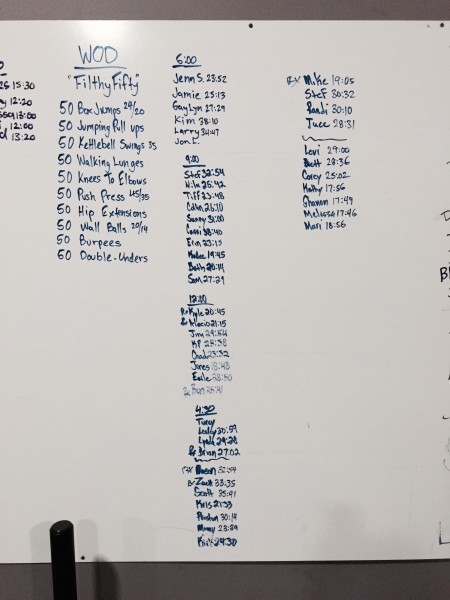 15:30
12:20
13:00
12:00
13:20
WOD
"Filthy Fifty"
50 Box Jumps 24/20
50 Jumping Pull ups
50 Kettlebell Swings 35
50 Walking Lunges
50 Knees To Elbows
50 Push Press 45/35
50 Hip Extensions
50 Wall Balls 20/14
50 Burpees
50 Double-Unders
6:00
Jenn S. 23:52
Jamie 25:13
GayLyn 27:29
Kim 38:10
Larry 34:47
Jon E.
9:00
Stef 32:54
25:42
Tiff 23:48
26:10
Sunny 31:00
Cassi 38:40
Erin 23:15
19:45
Beth 20:14
Sam 27:29
12:00
Rx Kyle 20:45
21:15
Jim 29:54
KP 25:38
Chad 23:32
James 18:48
28:50
Rx
4:30
Lesley 30:59
Lyola 29:28
Rx Brian 27:02
RX
Rx Zach 33:35
Scott 35:41
Kris 21:33
Preston 30:14
23:39
Kirk 24:30
RX Mike 19:05
Stef 30:32
Randi 30:10
28:31
Levi 29:00
Brett 28:36
Corey 25:02
Kathy 17:56
Shannon 17:49
Melissa 17:46
Mari 18:56